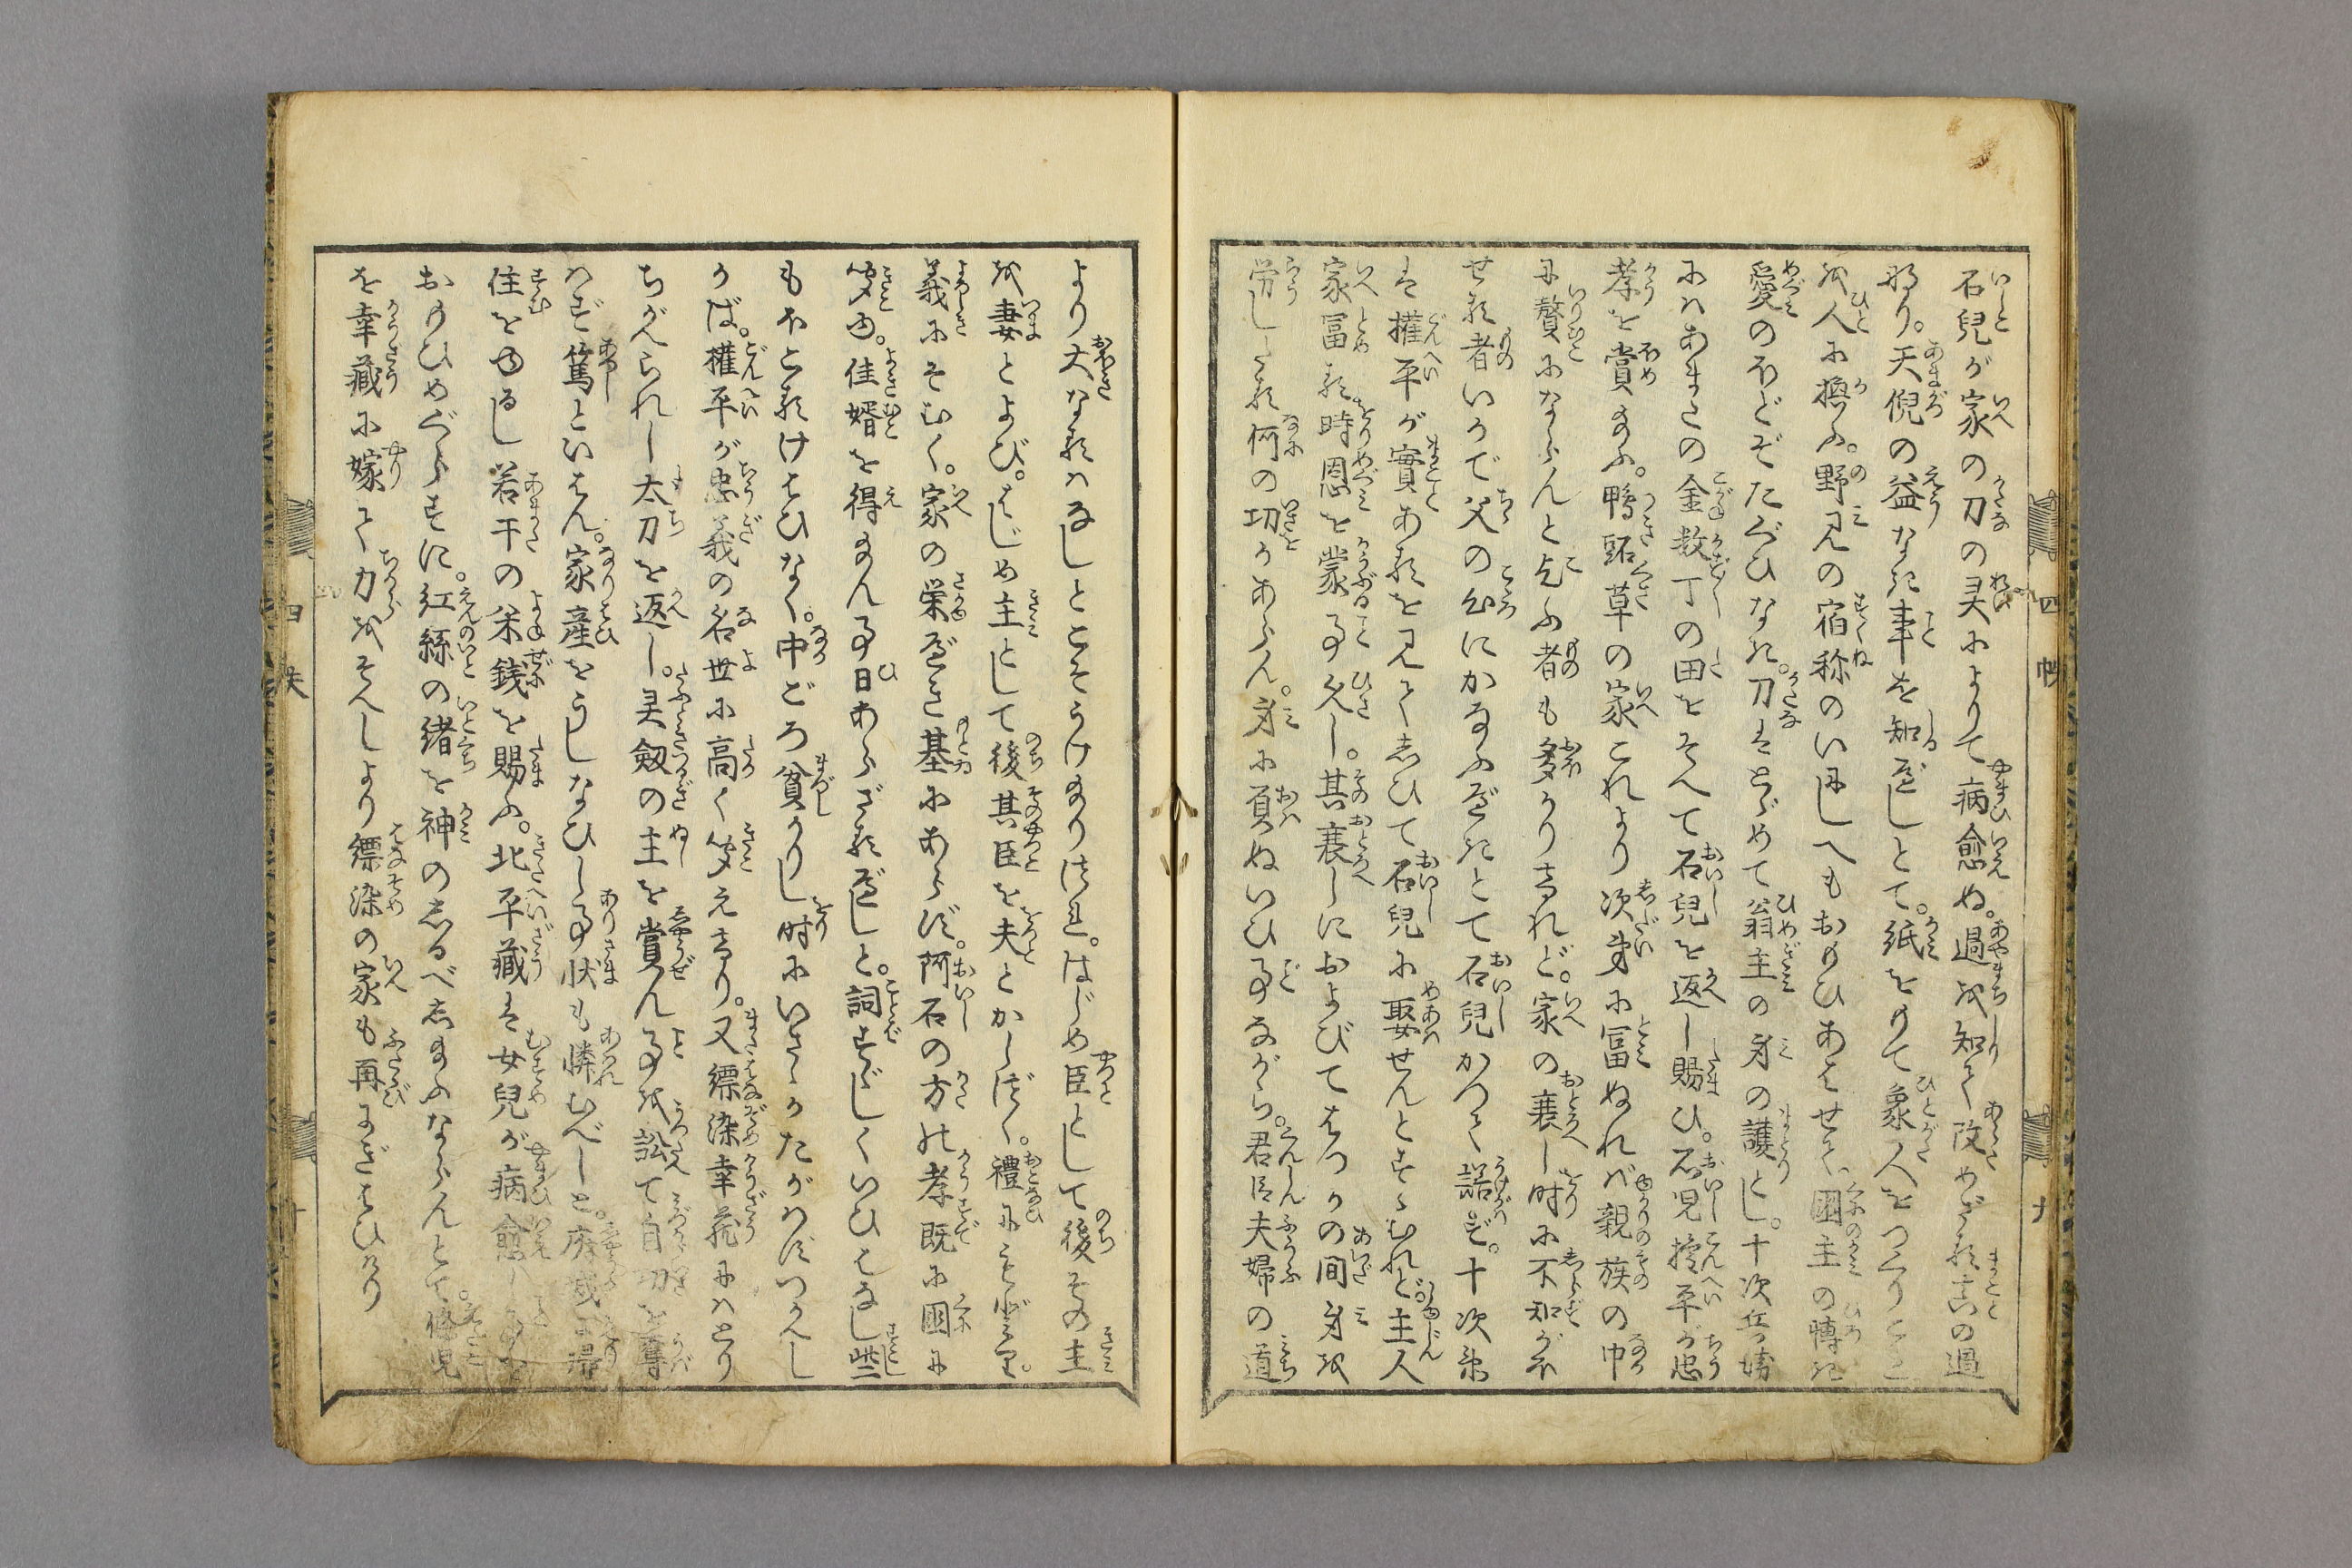 石兒が家の刀の灵によりて病愈ぬ。過を知て改めざる真の過
なり。天倪の益なき事を知べしとて。紙をもて象人をつくりこと
を人に換ふ。野見の宿祢のいにしへもおもひあはせて。國主の博き
愛のほどぞたぐひなき。刀はとゞめて翁主の身の護とし。十次兵衛
にはあまたの金数丁の田をそへて石兒を返し賜ひ。石児権平が忠
孝を賞給ふ。鴨跖草の家これより次第に冨ぬれば親族の中
に贅にならんと乞ふ者も多かりけれど。家の衰し时に不知がほ
せる者いかで父の心にかなふべきとて石兒かつて諾ず。十次兵衛
は權平が實あるを見てしひて石兒に娶せんとすゝむれど。主人
家冨る時恩を蒙る事久し。其衰しにおよびてはつかの間身を
労したる何の功かあらん。身に負ぬいひ事ながら。君臣夫婦の道
より大なるはなしとこそうけ給りつれ。はじめ臣として後その主
を妻とよび。はじめ主として後其臣を夫とかしづく。禮にもとり。
義にそむく。家の栄べき基にあらず。阿石の方の孝既に國に
聞ゆ。佳婿を得給ん事日あらざるべしと。詞すゞしくいひはなし些
もほとるけはひなく。中ごろ貧かりし时にいさゝかたがはずつかへし
かば。權平が忠義の名世に高く聞えけり。又縹染幸蔵にはとり
ちがへられし太刀を返し。灵劔の主を賞ん事を訟て自功を奪
はず篤といはん。家産をうしなひし事状も憐むべしと。
住をゆるし若干の米銭を賜ふ。北平藏は女兒が病愈し
おもひめぐらすに。紅絲の緒を神のしるべし給ふならんとて。
を幸藏に嫁て力をそへしより縹染の家も再にぎはひけり
四帙